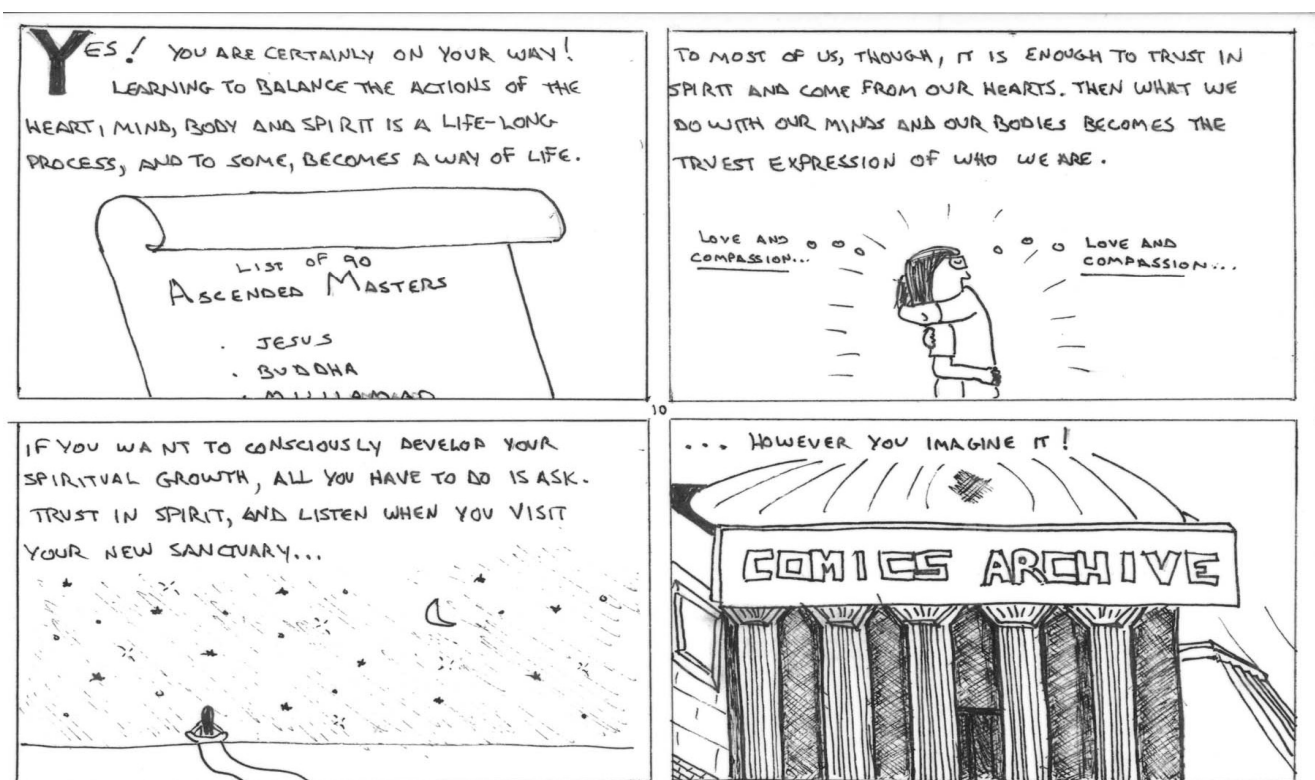 YES! YOU ARE CERTAINLY ON YOUR WAY!
LEARNING TO BALANCE THE ACTIONS OF THE
HEART, MIND, BODY AND SPIRIT IS A LIFE-LONG
PROCESS, AND TO SOME, BECOMES A WAY OF LIFE.
LIST OF 90
ASCENDED MASTERS
. JESUS
. BUDDHA
TO MOST OF US, THOUGH, IT IS ENOUGH TO TRUST IN
SPIRIT AND COME FROM OUR HEARTS. THEN WHAT WE
DO WITH OUR MINDS AND OUR BODIES BECOMES THE
TRUEST EXPRESSION OF WHO WE ARE.
LOVE AND
COMPASSION...
LOVE AND
COMPASSION...
10
IF YOU WANT TO CONSCIOUSLY DEVELOP YOUR
SPIRITUAL GROWTH, ALL YOU HAVE TO DO IS ASK.
TRUST IN SPIRIT, AND LISTEN WHEN YOU VISIT
YOUR NEW SANCTUARY...
... HOWEVER YOU IMAGINE IT!
COMICS ARCHIVE